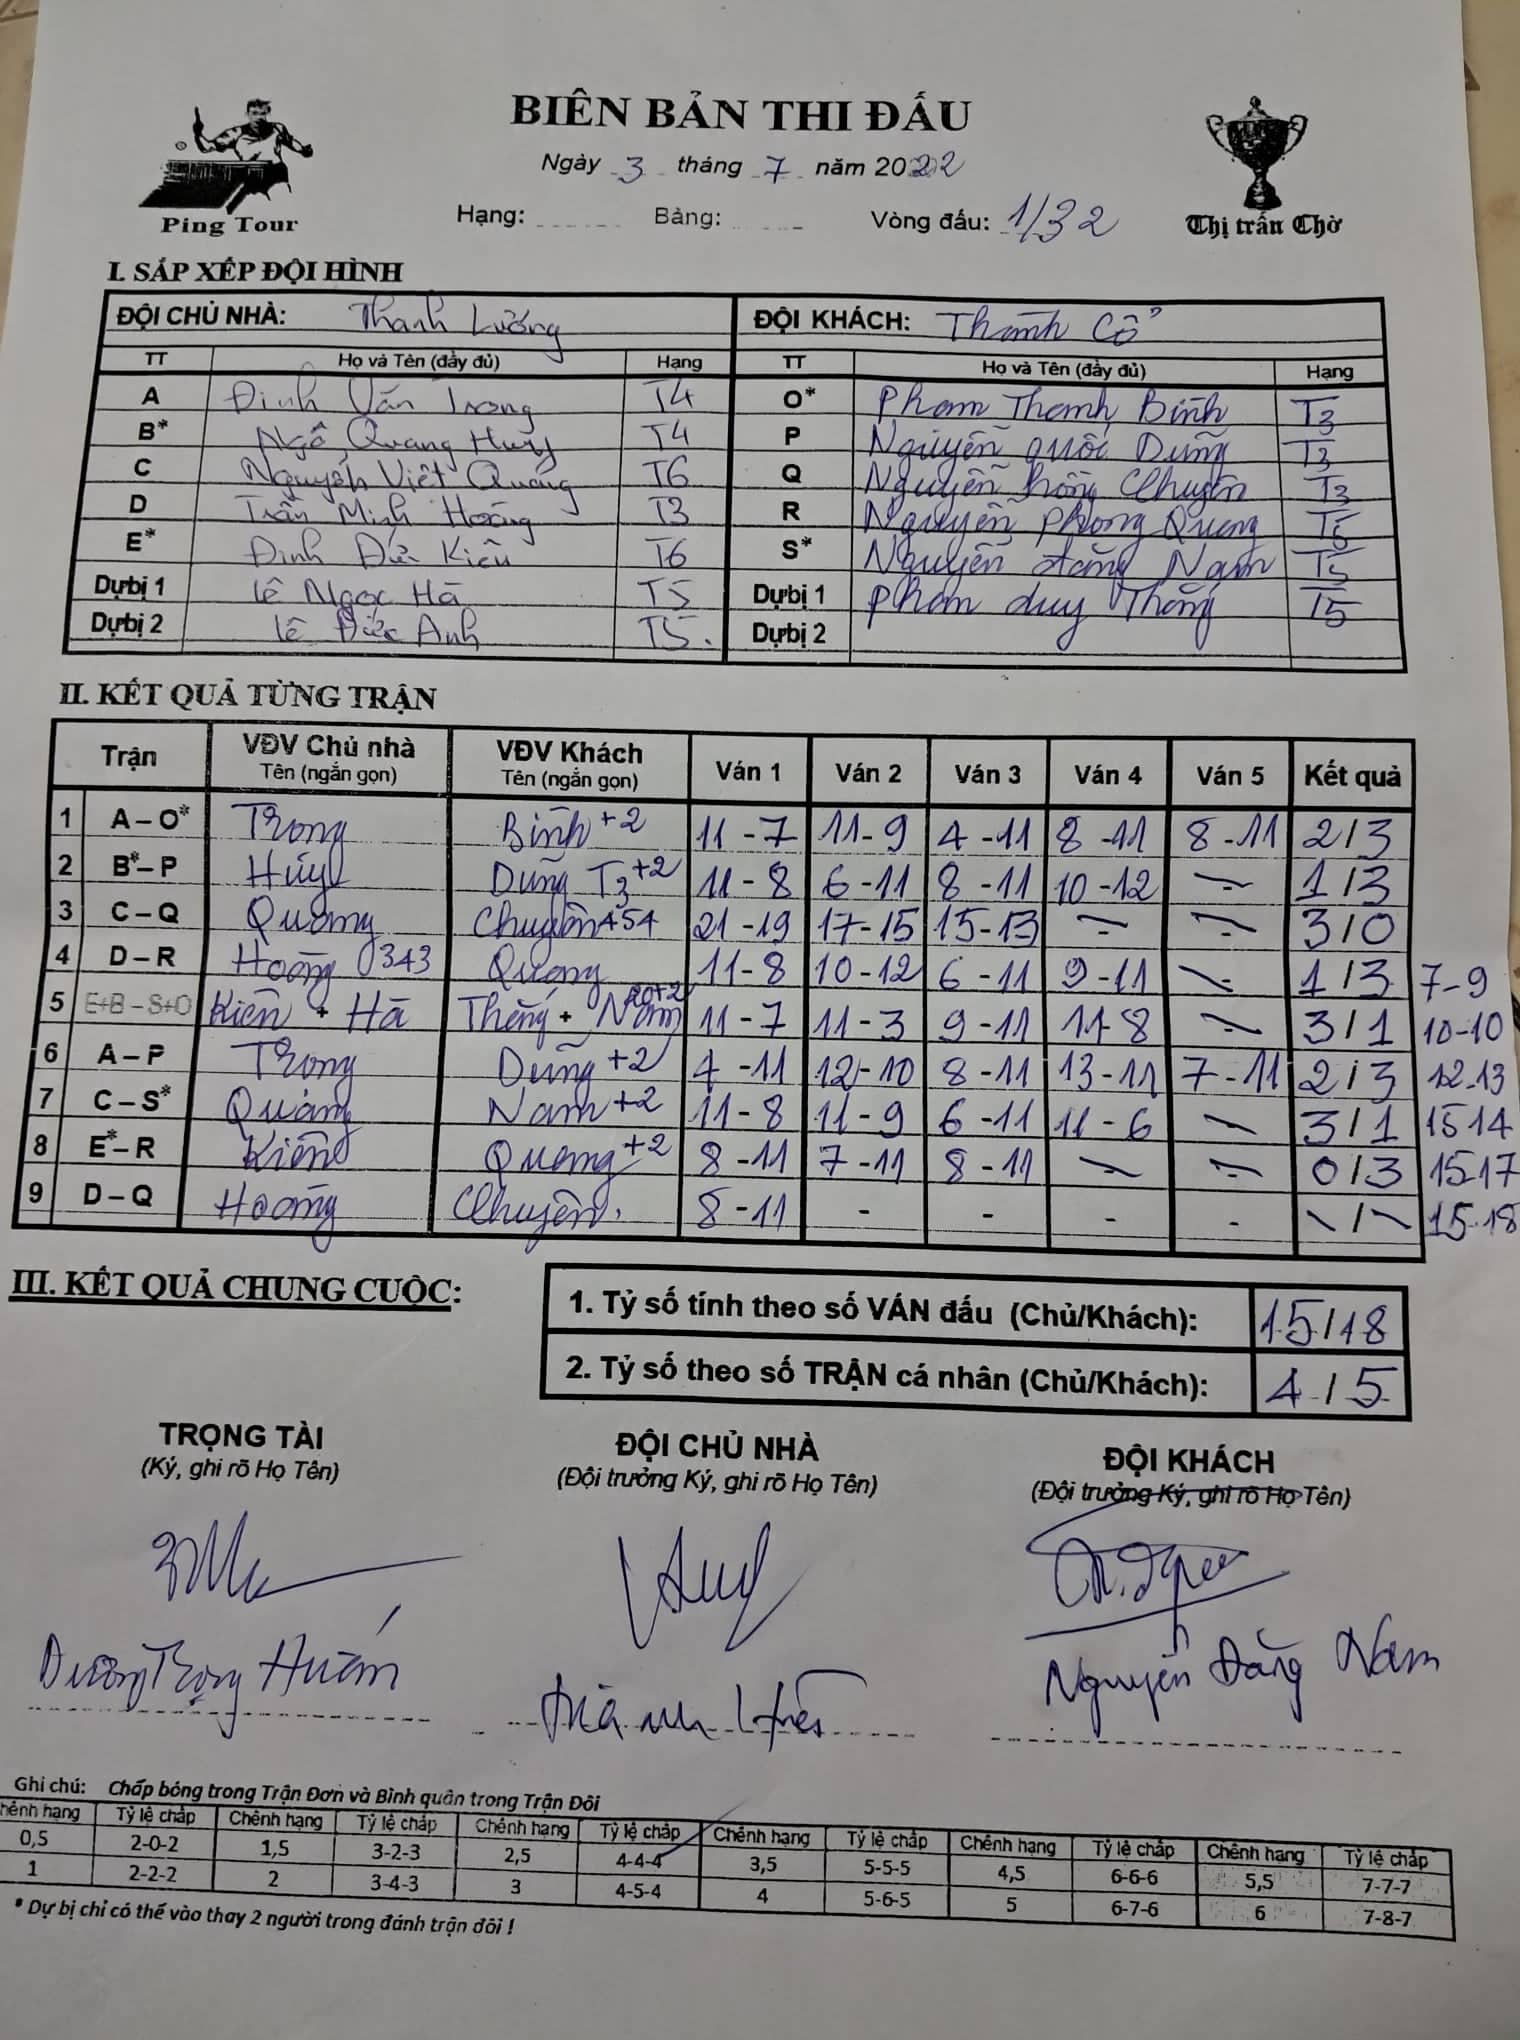 BIÊN BẢN THI ĐẤU
Ngày 3 tháng 7 năm 2022
Ping Tour
Hạng: Bảng: Vòng đấu: 1/32
Thị trấn Chờ
I. SẮP XẾP ĐỘI HÌNH
ĐỘI CHỦ NHÀ: Thanh Lương ĐỘI KHÁCH: Thành Cổ
TT Họ và Tên (đầy đủ) Hạng TT Họ và Tên (đầy đủ) Hạng
A Đinh Văn Trong T4 O* Pham Thanh Bình T3
B* Ngô Quang Huy T4 P Nguyễn Quốc Dũng T3
C Nguyễn Viết Quảng T6 Q Nguyễn hồng Chuyên T3
D Trần Minh Hoàng T3 R Nguyễn Phong Quang T5
E* Đinh Đức Kiên T6 S* Nguyễn đăng Nam T5
Dự bị 1 Lê Ngọc Hà T5 Dự bị 1 Pham duy Thắng T5
Dự bị 2 Lê Đức Anh T5. Dự bị 2
II. KẾT QUẢ TỪNG TRẬN
Trận VĐV Chủ nhà Tên (ngắn gọn) VĐV Khách Tên (ngắn gọn) Ván 1 Ván 2 Ván 3 Ván 4 Ván 5 Kết quả
1 A – O* Trong Bình +2 11 - 7 11 - 9 4 - 11 8 - 11 8 - 11 2 / 3
2 B* – P Huy Dũng T3 +2 11 - 8 6 - 11 8 - 11 10 - 12 - 1 / 3
3 C – Q Quảng Chuyên 454 21 - 19 17 - 15 15 - 13 - - 3 / 0
4 D – R Hoàng 343 Quang 11 - 8 10 - 12 6 - 11 9 - 11 - 1 / 3 7-9
5 E+B – S+O Kiên + Hà Thắng + Nam 11 - 7 11 - 3 9 - 11 11 - 8 - 3 / 1 10-10
6 A – P Trong Dũng +2 4 - 11 12 - 10 8 - 11 13 - 11 7 - 11 2 / 3 12-13
7 C – S* Quảng Nam +2 11 - 8 11 - 9 6 - 11 11 - 6 - 3 / 1 15 14
8 E* – R Kiên Quang +2 8 - 11 7 - 11 8 - 11 - - 0 / 3 15-17
9 D – Q Hoàng Chuyên. 8 - 11 - - - - \ / \ 15-18
III. KẾT QUẢ CHUNG CUỘC:
1. Tỷ số tính theo số VÁN đấu (Chủ/Khách): 15 / 18
2. Tỷ số theo số TRẬN cá nhân (Chủ/Khách): 4 / 5
TRỌNG TÀI ĐỘI CHỦ NHÀ ĐỘI KHÁCH
(Ký, ghi rõ Họ Tên) (Đội trưởng Ký, ghi rõ Họ Tên) (Đội trưởng Ký, ghi rõ Họ Tên)
Huy
Dương Trọng Huấn Nguyễn Đăng Nam
Ghi chú: Chấp bóng trong Trận Đơn và Bình quân trong Trận Đôi
Chênh hạng Tỷ lệ chấp Chênh hạng Tỷ lệ chấp Chênh hạng Tỷ lệ chấp Chênh hạng Tỷ lệ chấp Chênh hạng Tỷ lệ chấp Chênh hạng Tỷ lệ chấp
0,5 2-0-2 1,5 3-2-3 2,5 4-4-4 3,5 5-5-5 4,5 6-6-6 5,5 7-7-7
1 2-2-2 2 3-4-3 3 4-5-4 4 5-6-5 5 6-7-6 6 7-8-7
* Dự bị chỉ có thể vào thay 2 người trong đánh trận đôi !